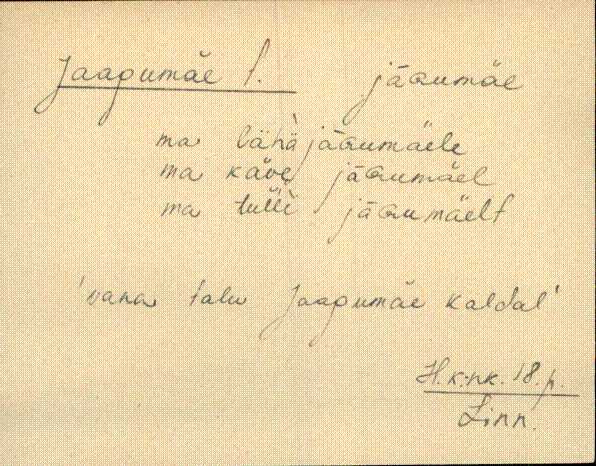 Jaagumäe t. jāɢumäe
ma lähä jāɢumäele
ma käve jāɢumäel
ma tulli jāɢumäelt
'vana talu Jaagumäe kaldal'
H. k-nk. 18. p.
Linn.